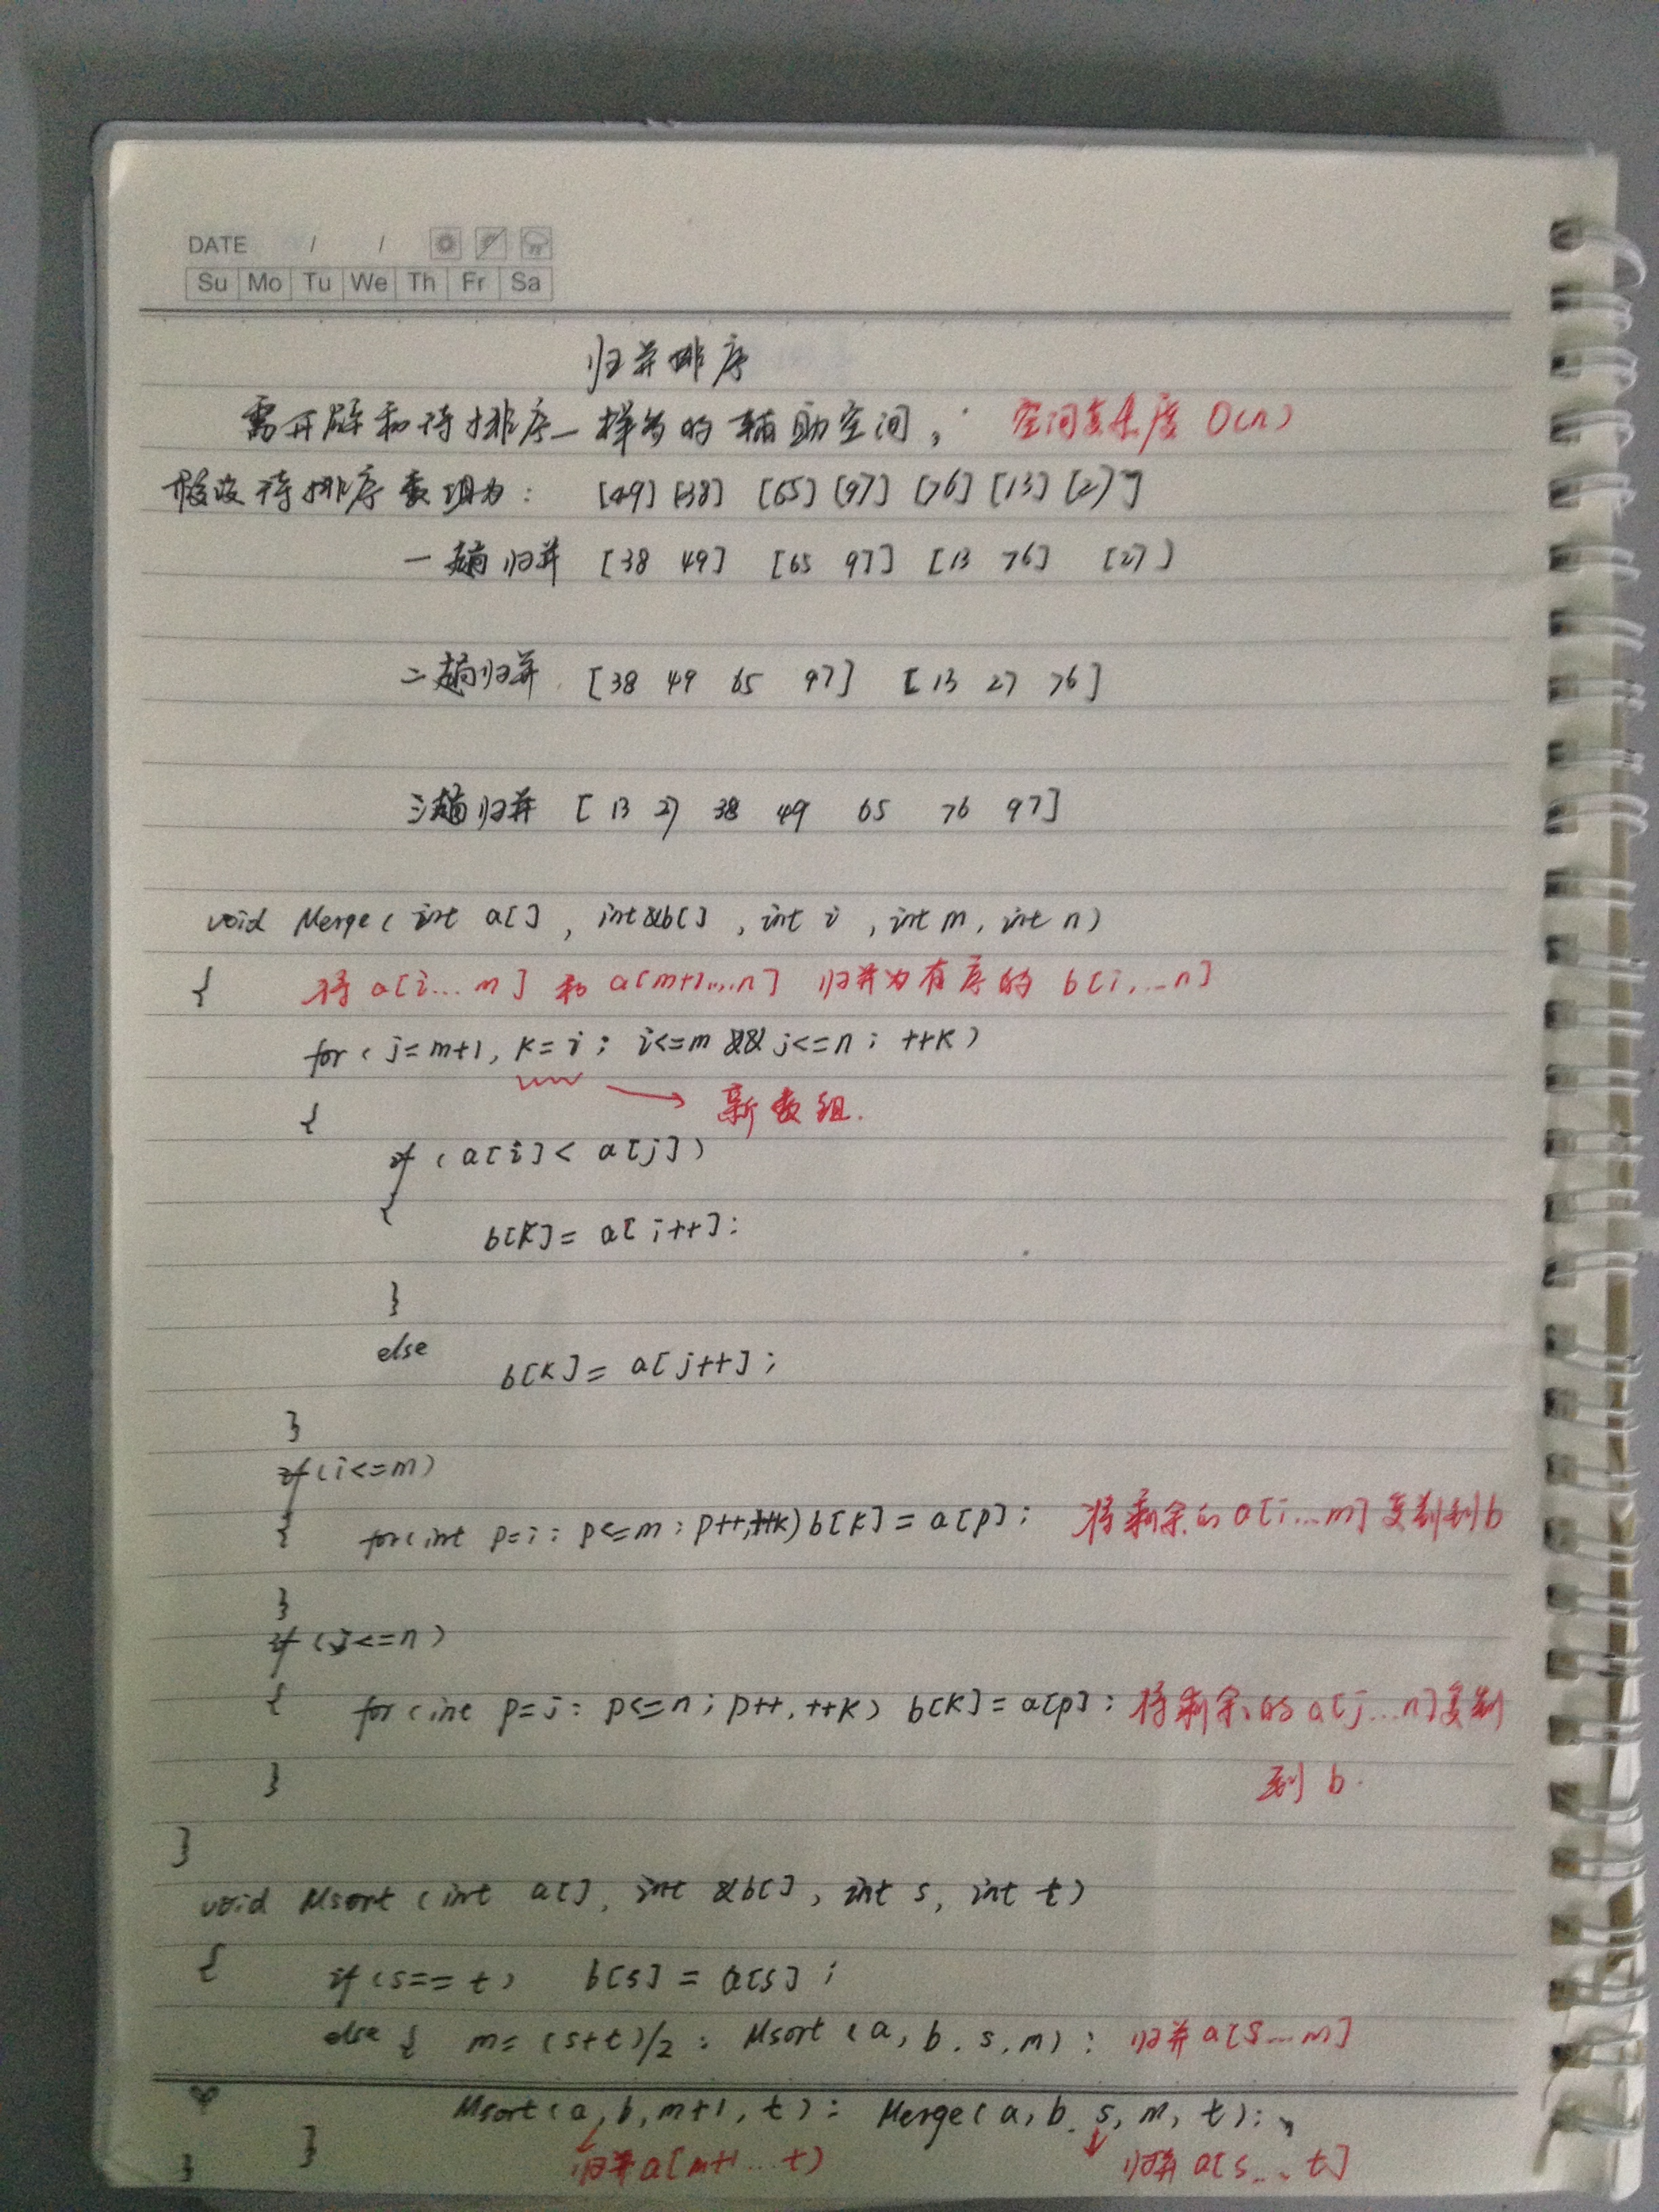 DATE / /
Su Mo Tu We Th Fr Sa
归并排序
需开辟和待排序一样多的辅助空间; 空间复杂度 O(n)
假设待排序数组为: [49] [38] [65] [97] [76] [13] [27]
一趟归并 [38 49] [65 97] [13 76] [27]
二趟归并 [38 49 65 97] [13 27 76]
三趟归并 [13 27 38 49 65 76 97]
void Merge(int a[], int &b[], int i, int m, int n)
{ 将a[i...m] 和 a[m+1...n] 归并为有序的 b[i,...n]
for (j=m+1, k=i; i<=m && j<=n; ++k)
{ 新数组.
if (a[i]< a[j])
{
b[k]= a[i++];
}
else
b[k]= a[j++];
}
if(i<=m)
{ for(int p=i; p<=m; p++,++k) b[k]=a[p]; 将剩余的a[i...m]复制到b
}
if (j<=n)
{ for(int p=j; p<=n; p++,++k) b[k]=a[p]; 将剩余的a[j...n]复制
} 到b.
}
void Msort (int a[], int &b[], int s, int t)
{ if(s==t) b[s] = a[s];
else { m= (s+t)/2; Msort(a, b, s, m); 归并a[s...m]
Msort(a, b, m+1, t); Merge(a, b, s, m, t);
} 归并a[m+1...t) 归并a[s...t]
}